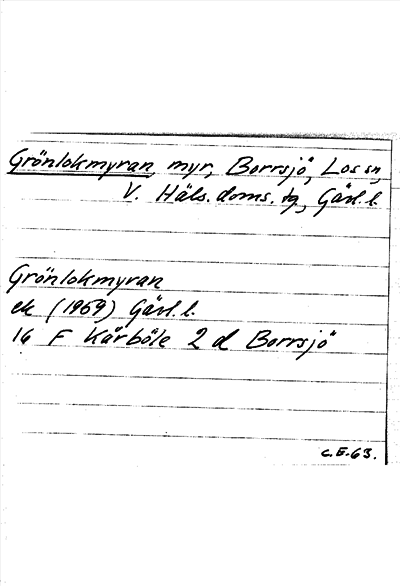 Grönlokmyran, myr, Borrsjö, Los sn,
V. Häls. doms. tg, Gävl. l.
Grönlokmyran
ek (1969) Gävl. l.
16 F Kårböle 2 d Borrsjö
C.E. 63.